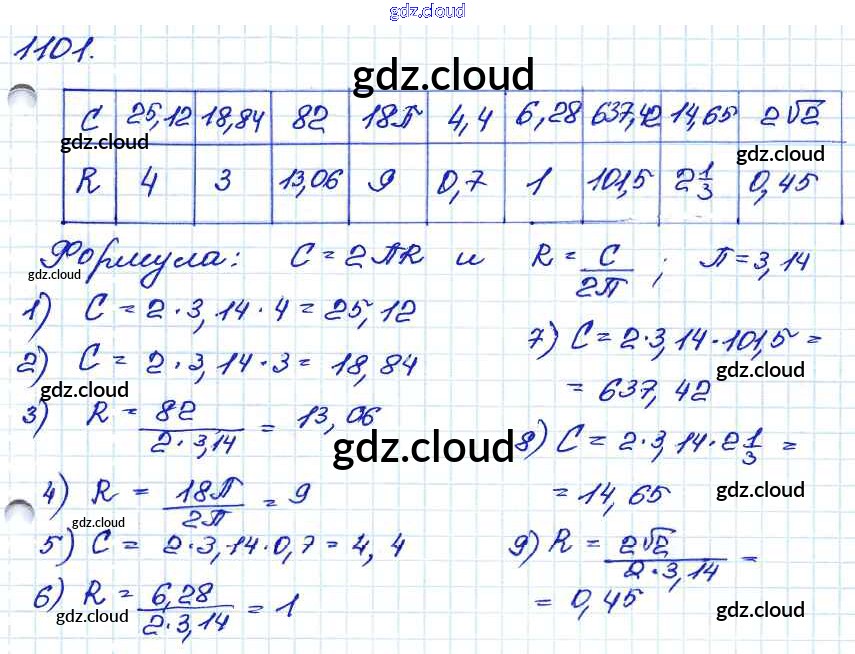 gdz.cloud
1101.
gdz.cloud
C 25,12 18,84 82 18П 4,4 6,28 637,42 14,65 2√2
gdz.cloud gdz.cloud
R 4 3 13,06 9 0,7 1 101,5 2 1/3 0,45
Формула: C = 2ПR и R = C/2П ; П = 3,14
gdz.cloud
1) C = 2·3,14·4 = 25,12
2) C = 2·3,14·3 = 18,84
gdz.cloud
3) R = 82/2·3,14 = 13,06
gdz.cloud
4) R = 18П/2П = 9
gdz.cloud
5) C = 2·3,14·0,7 = 4,4
6) R = 6,28/2·3,14 = 1
gdz.cloud
7) C = 2·3,14·101,5 =
gdz.cloud
= 637,42
8) C = 2·3,14·2 1/3 =
= 14,65
gdz.cloud
9) R = 2√2/2·3,14 =
= 0,45
gdz.cloud